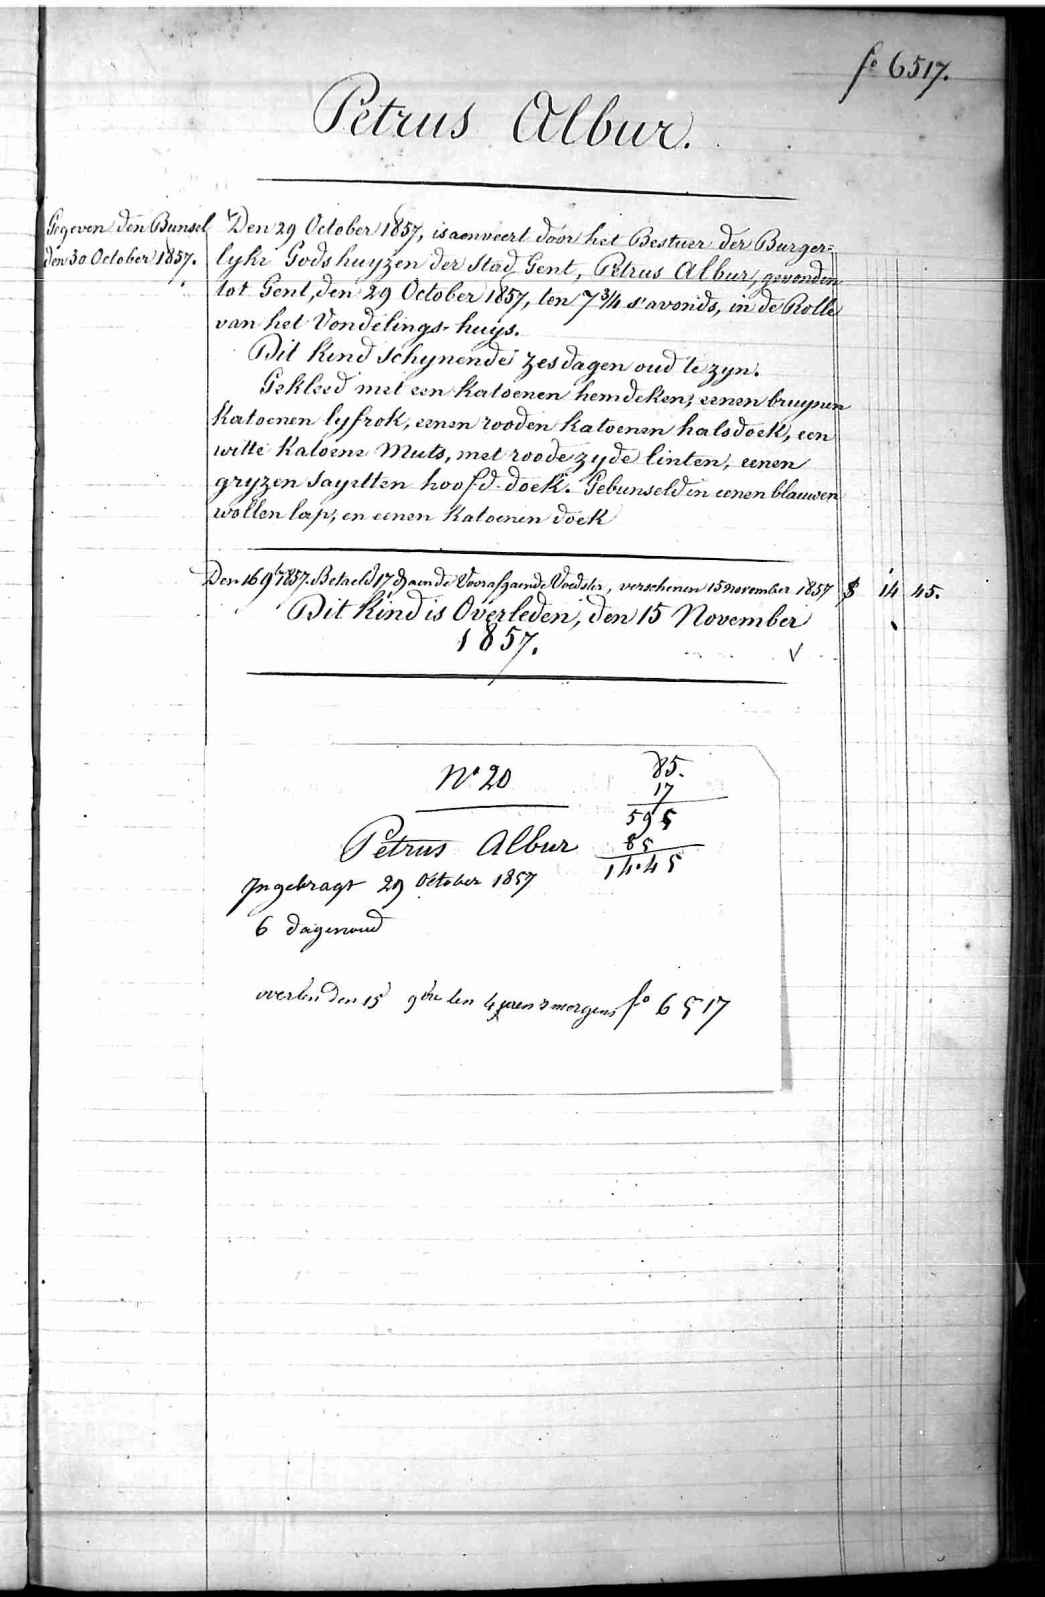 fo 6517.
Petrus Albur.
Gegeven den Bunsel
den 30 October 1857.
Den 29 October 1857, is aenveert door het Bestuer der Burger=
lyke Godshuyzen der stad Gent, Petrus Albur, gevonden
tot Gent, den 29 October 1857, ten 7 3/4 s'avonds, in de Rolle
van het Vondelings-huys.
Dit kind schynende zes dagen oud te zyn.
Gekleed met een katoenen hemdeken, eenen bruynen
katoenen lyfrok, eenen rooden katoenen halsdoek, een
witte katoene Muts, met roode zyde linten, eenen
gryzen sayetten hoofd-doek. Gebunseld in eenen blauwen
wollen lap, en eenen katoenen doek
Den 16 9bre 1857. Betaeld 17 dagen de Voorafgaende Voedster, verschenen 15 november 1857 $ 14 45.
Dit kind is Overleden, den 15 November
1857.
No 20
Petrus Albur
Ingebragt 29 October 1857
6 dagen oud
overleden den 15 9bre ten 4 uren smorgens fo 6517
85.
17
595
85
14.45